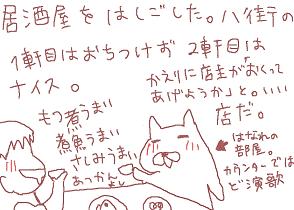 居酒屋をはしごした。八街の
1軒目はおちつけず 2軒目は
ナイス。
かえりに店主が「おくって
あげようか」と。いい
店だ。
もつ煮うまい
煮魚うまい
さしみうまい
あつかんよし
はなれの
部屋。
カウンターでは
ど演歌